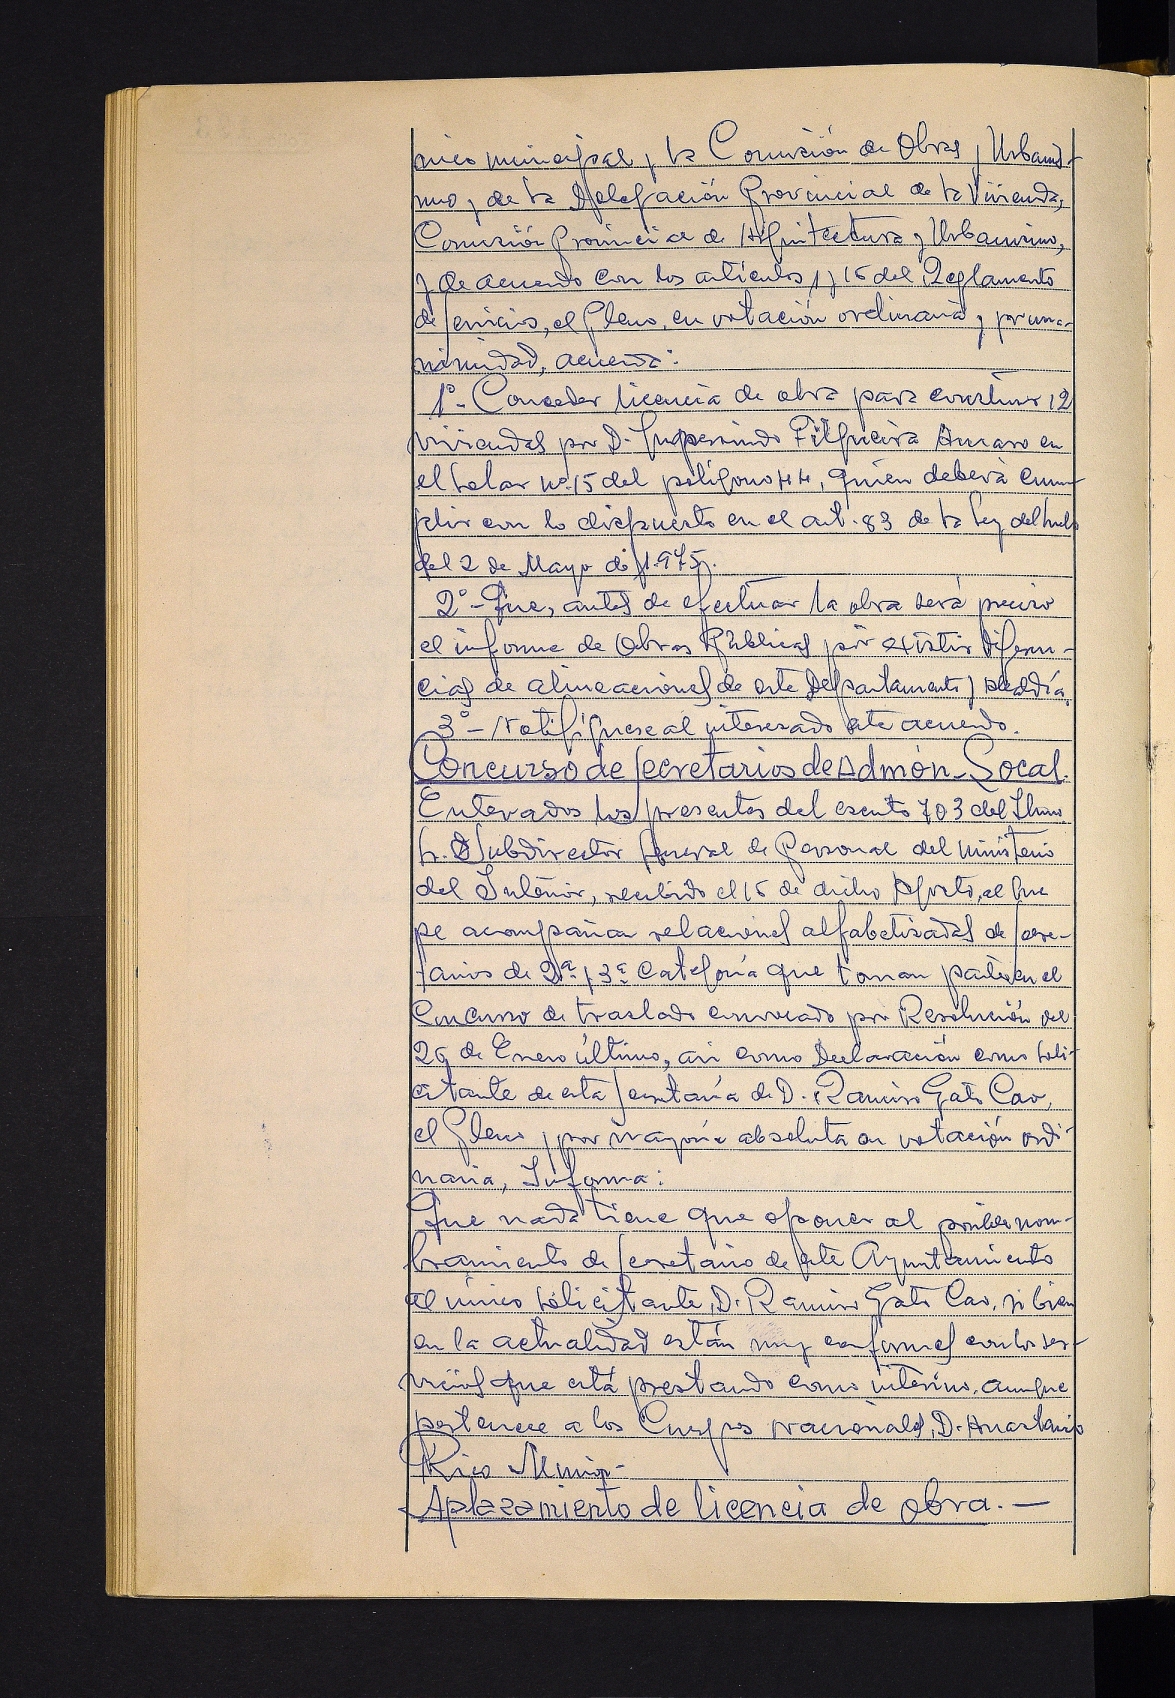 nico municipal y la Comisión de Obras y Urbanis-
mo y de la Delegación Provincial de la Vivienda,
Comisión Provincial de Arquitectura y Urbanismo,
y de acuerdo con los artículos 1 y 15 del Reglamento
de servicios, el Pleno, en votación ordinaria y por una-
nimidad, acuerda:
1º- Conceder licencia de obra para construir 12
viviendas por D. Filgueira Amaro en
el solar nº 15 del polígono 44, quien deberá cum-
plir con lo dispuesto en el art. 83 de la Ley del Suelo
del 2 de Mayo de 1.975.
2º- Que, antes de efectuar la obra será preciso
el informe de Obras Públicas por existir diferen-
cias de alineaciones de este Departamento y
3º- Notifíquese al interesado este acuerdo.
Concurso de Secretarios de Admón. Local.
Enterados los presentes del escrito 703 del Iltmo.
Sr. Subdirector General de Personal del Ministerio
del Interior, recibido el 15 de dicho Agosto, al que
se acompañan relaciones alfabetizadas de Secre-
tarios de 2ª y 3ª Categoría que toman parte en el
Concurso de traslado convocado por Resolución del
29 de Enero último, así como Declaración como soli-
citante de esta Secretaría de D. Ramiro Gato Cao,
el Pleno y por mayoría absoluta en votación ordi-
naria, Informa:
Que nada tiene que oponer al posible nom-
bramiento de Secretario de este Ayuntamiento
al único solicitante, D. Ramiro Gato Cao, si bien
en la actualidad están muy conformes con los ser-
vicios que está prestando como interino, aunque
pertenece a los Cuerpos nacionales, D. Anastasio
Rico
Aplazamiento de licencia de obra.-